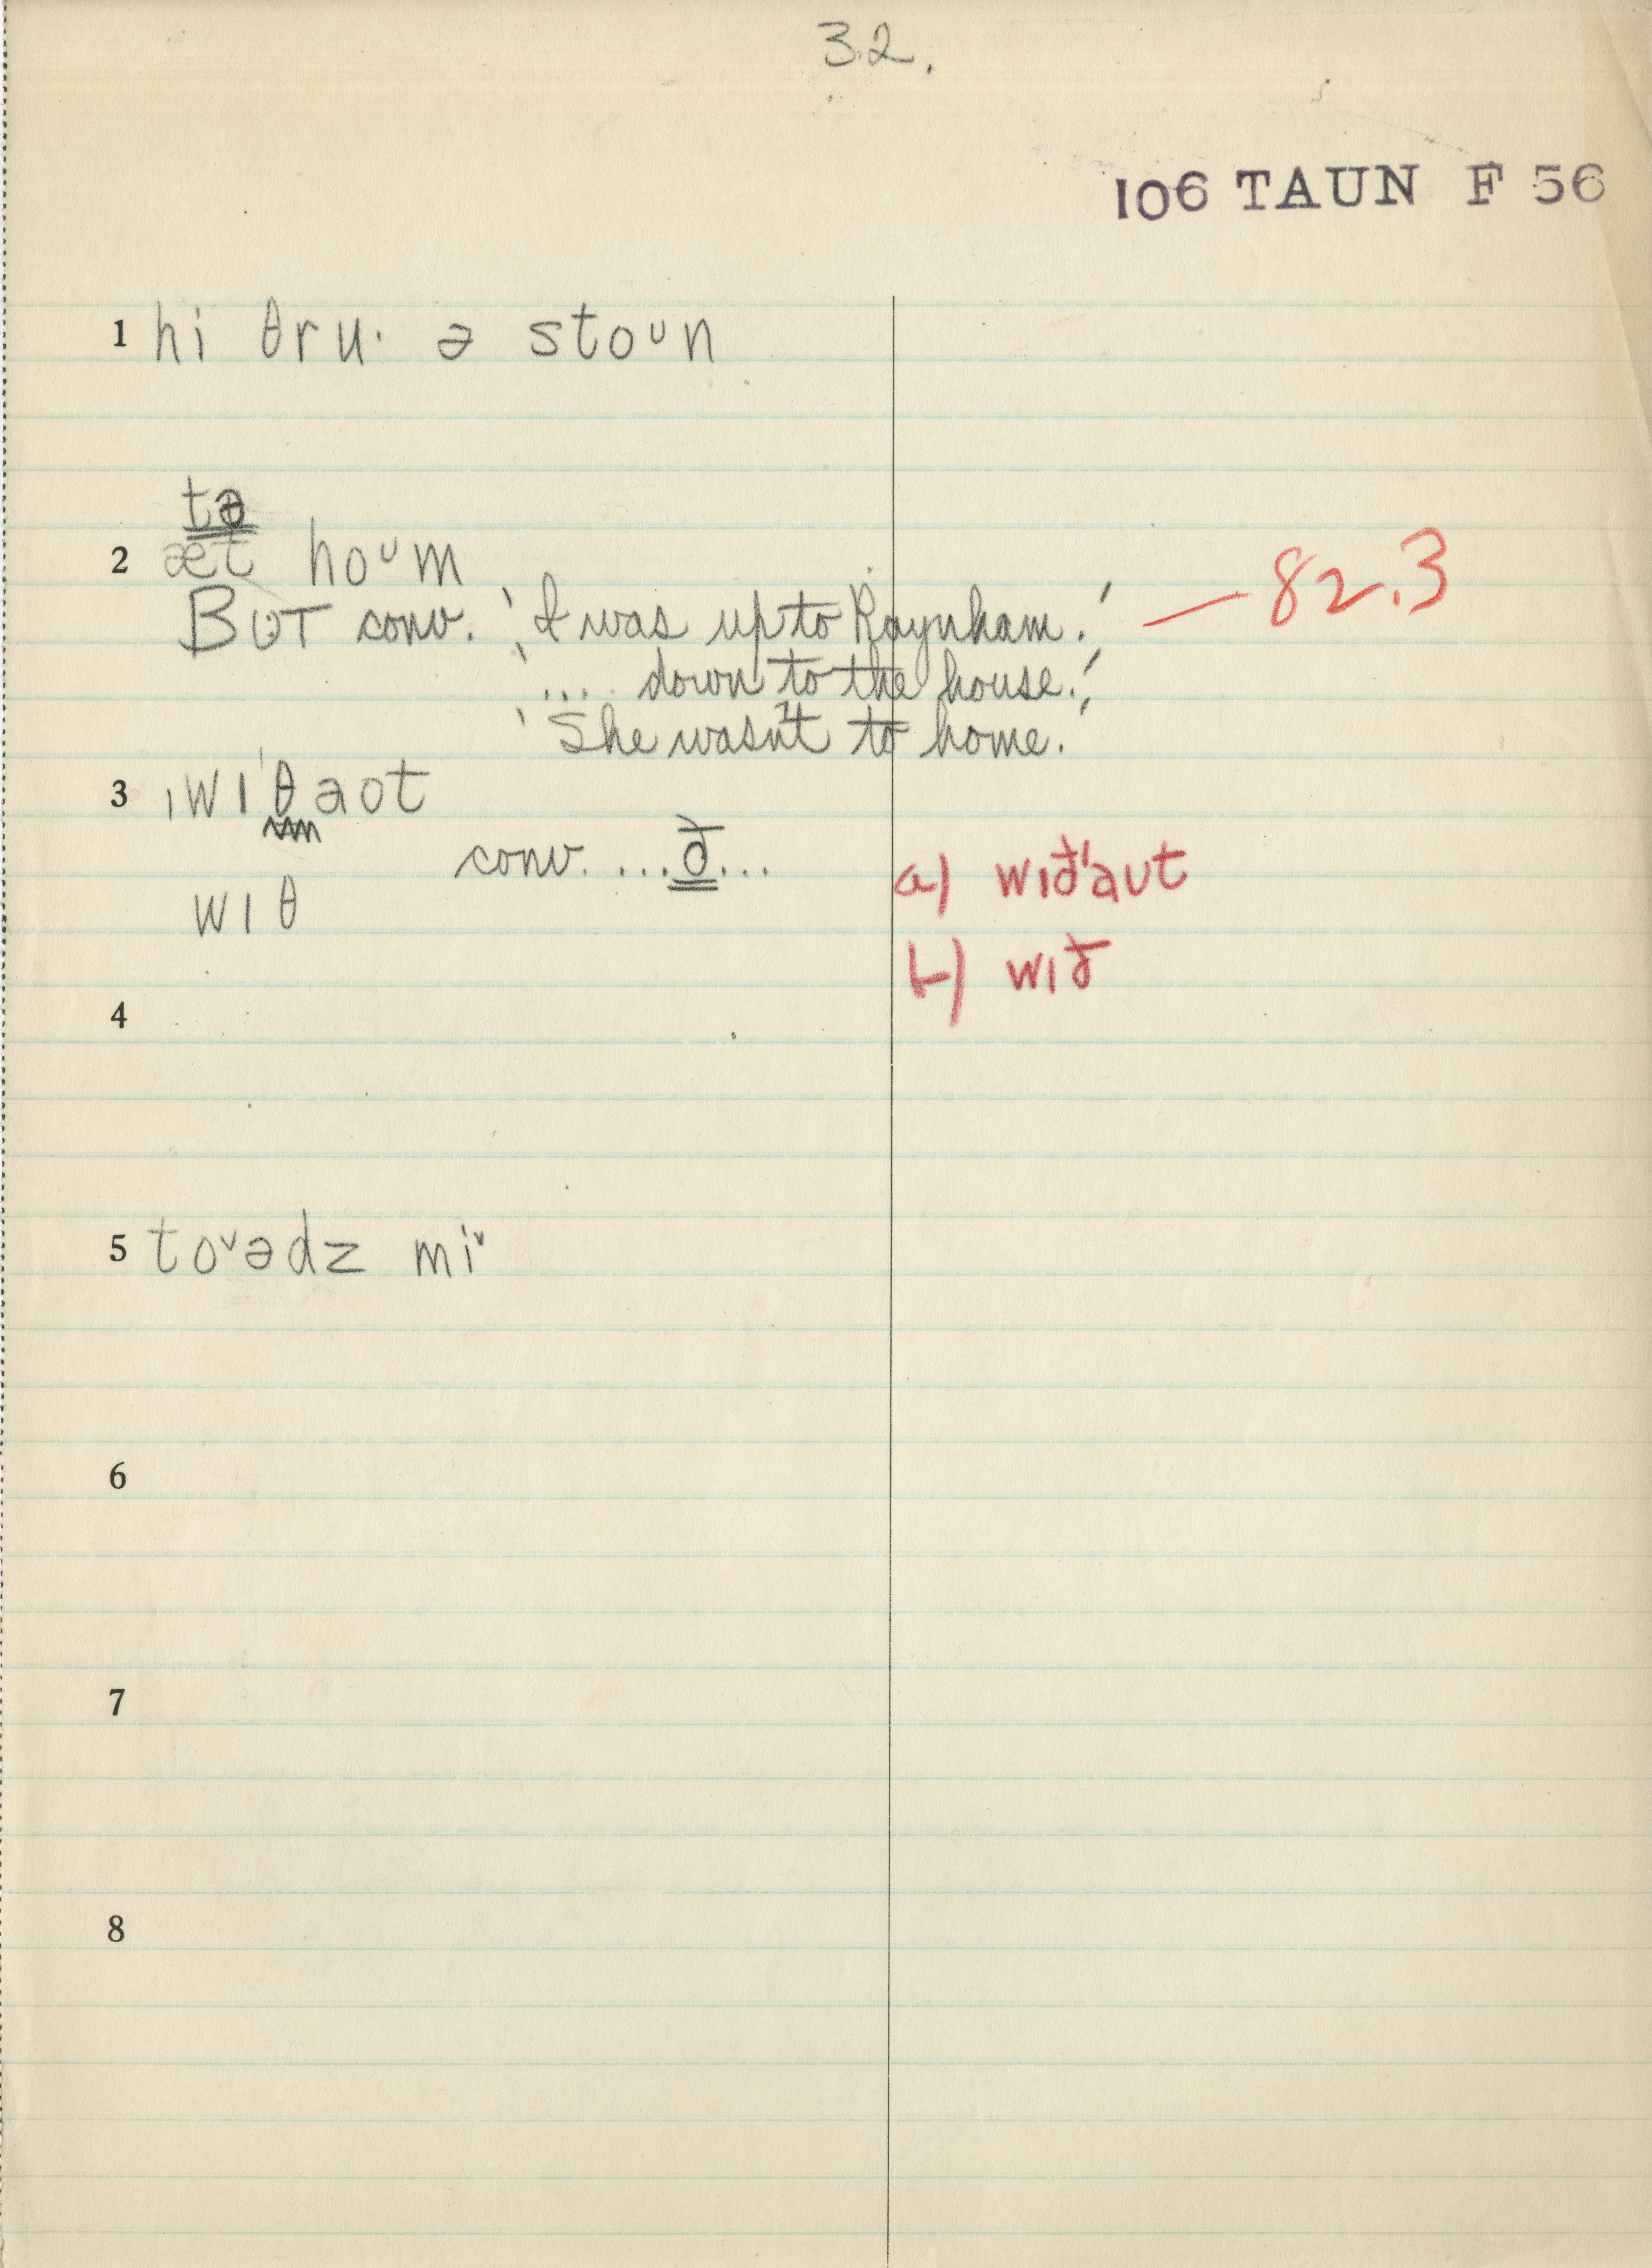 32.
106 TAUN F 56
1 hi θru· ə stoᴜn
tə
2 æt hoᴜm
BUT conv. 'I was up to Raynham.' — 82.3
'... down to the house.'
'She wasn't to home.'
3 ˌwɪˈθaʊt
conv. ...ð...
a) wɪð'aut
wɪθ
b) wɪð
4
5 toᵛədz miᵛ
6
7
8